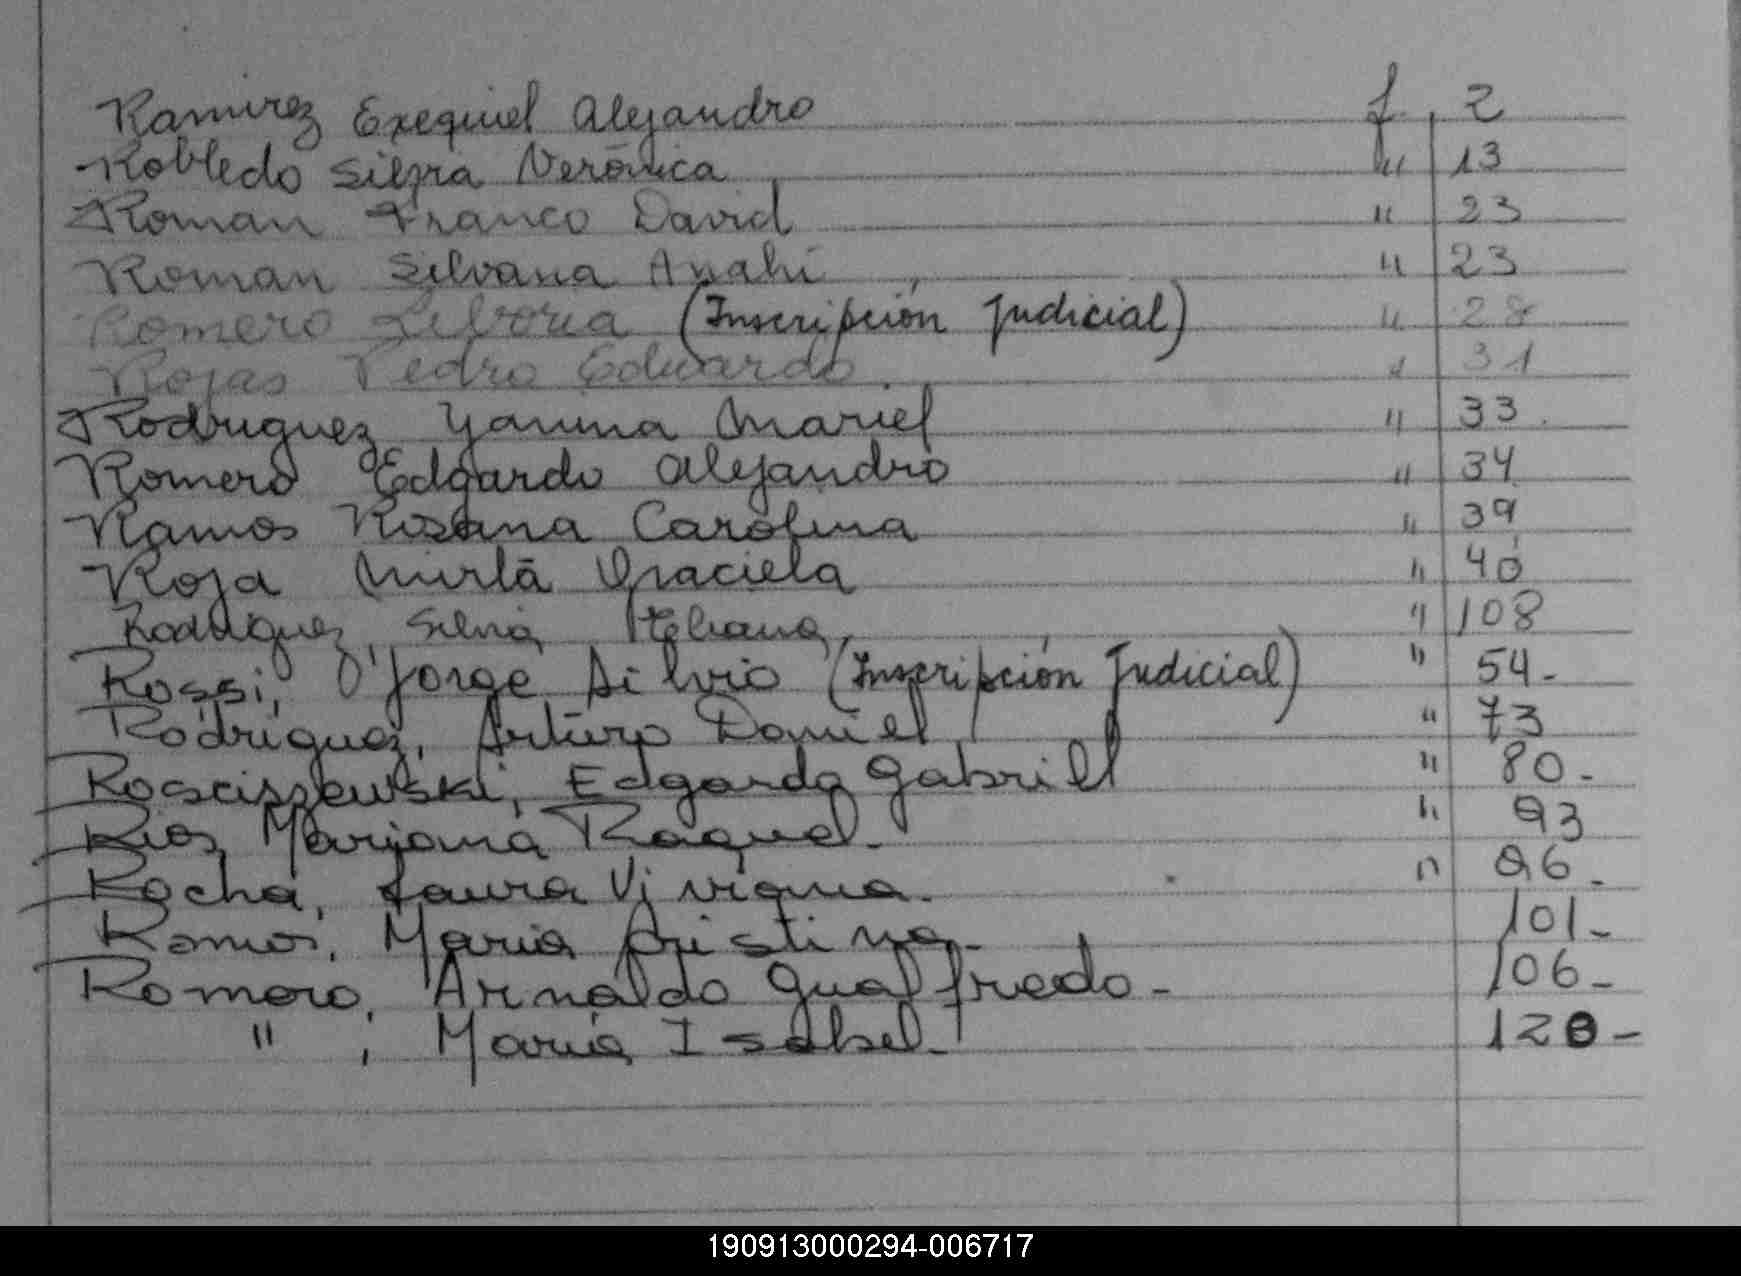 Ramirez Exequiel Alejandro f. 2
Robledo Silvia Verónica " 13
Roman Franco David " 23
Roman Silvana Anahi " 23
Romero Liboria (Inscripción Judicial) " 28
Rojas Pedro Eduardo " 31
Rodriguez Yanina Mariel " 33
Romero Edgardo Alejandro " 34
Ramos Rosana Carolina " 39
Roja Mirta Graciela " 40
Rodriguez Silvia " 108
Rossi, Jorge Silvio (Inscripción Judicial) " 54-
Rodriguez, Arturo Daniel " 73
Rosciszewski, Edgardo Gabriel " 80-
Rios, Mariana Raquel. " 93
Rocha, Laura Viviana. " 96-
Ramos, Maria Cristina- 101-
Romero, Arnaldo Gualfredo- 106-
" , Maria Isabel- 120-
190913000294-006717